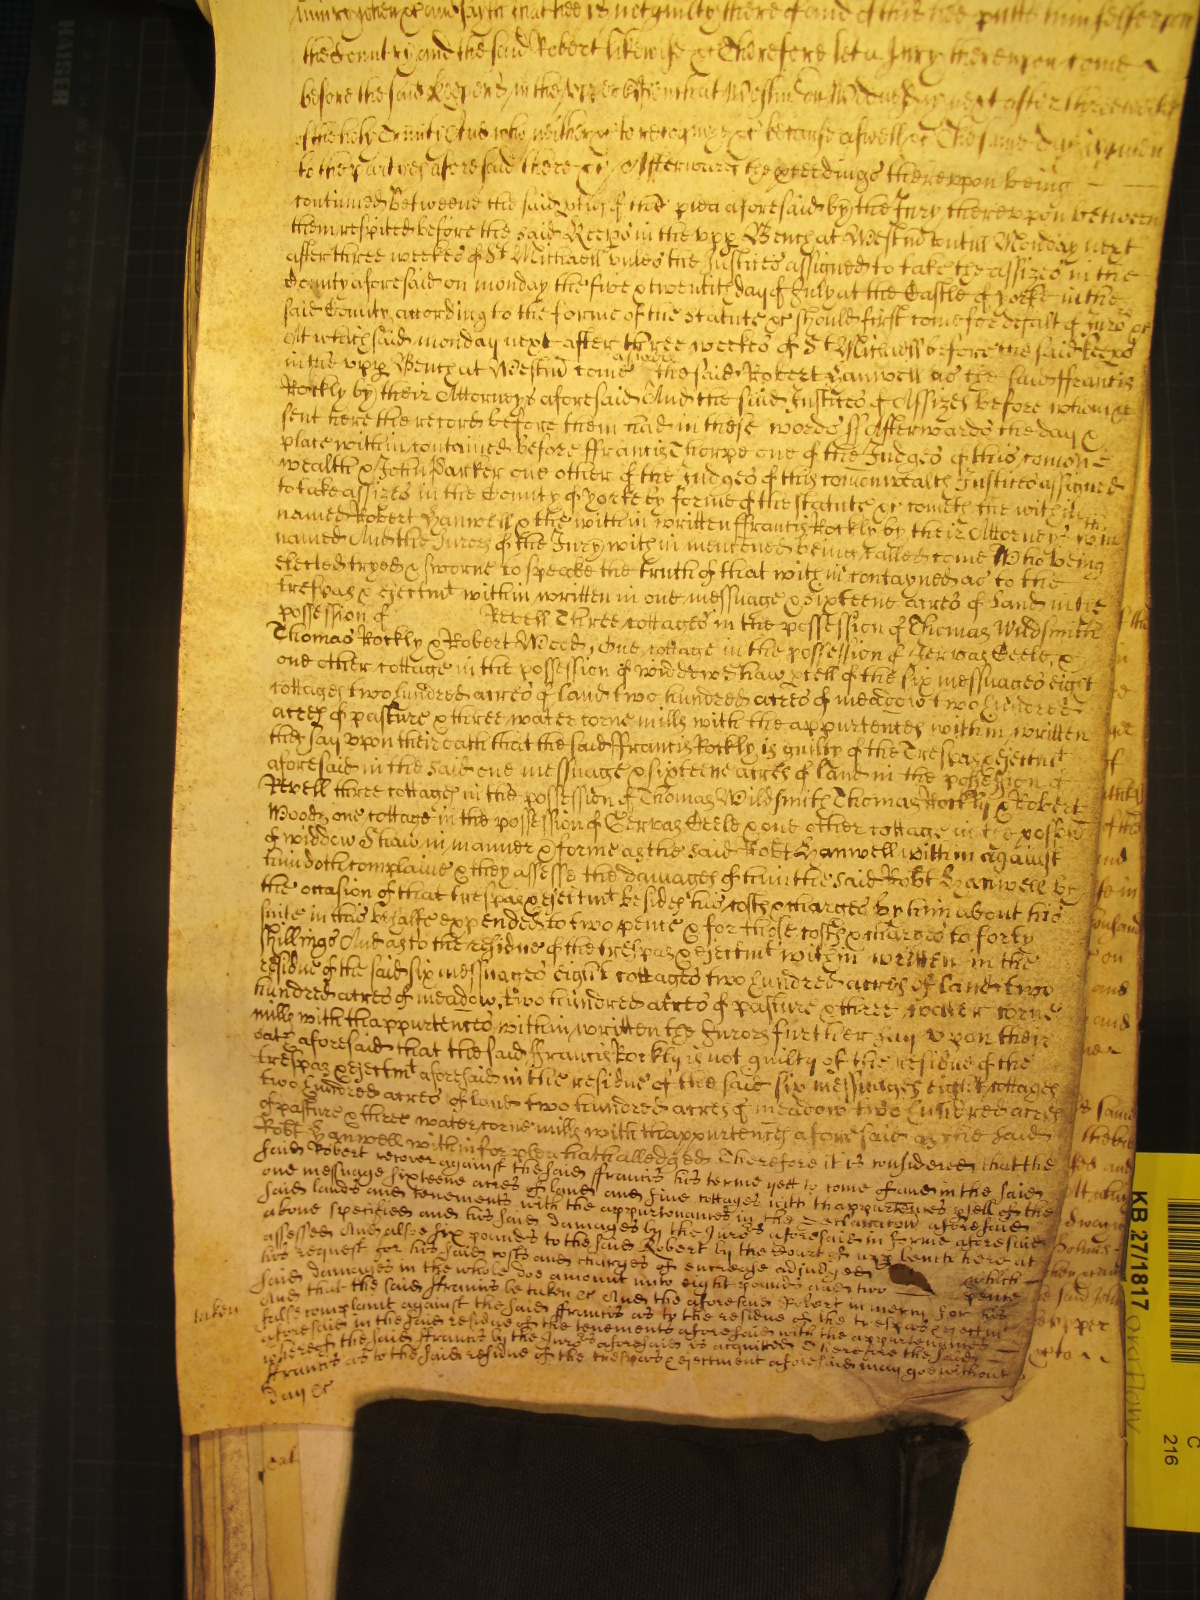 Iniury when &c and saith that hee is not guilty thereof and of this hee putts himselfe upon
the Country and the said Robert likewise &c Therefore let a Jury thereupon come
before the said Keepers in the upper Bench at Westmr on Wednesday next after three weekes
of the holy Trinity And who neither &c to recognize &c because aswell &c The same day is given
to the partyes aforesaid there &c Afterwards the p'ceedings thereupon being
continued betweene the said p'ties of the plea aforesaid by the Jury thereupon between
them respited before the said Keeps in the vpp Bench at Westmr vntill Monday next
after three weekes of St Michaell vnles the Justices assigned to take the assizes in the
County aforesaid on monday the five & twentith day of July at the Castle of Yorke in the
said County according to the forme of the statute &c should first come for default of Juro's &c
At which said monday next after three weekes of St Michaell before the said Keeps
in the vpp Bench at Westmr come aswell the said Robert Hanwell as the said ffrancis
Rockly by their Attorneys aforesaid And the said Justices of Assizes before whom &c
sent here the record before them had in these words ss Afterwards the day &
place within contained before ffrancis Thorpe one of the Judges of this comon
wealth & John Parker one other of the Judges of this comonwealth Justices assigned
to take assizes in the County of Yorke by forme of the statute &c cometh the within
named Robert Hanwell & the within written ffrancis Rockly by their Attorneys within
named And the Jurors of the Jury within mentioned being called come Who being
elected tryed & sworne to speake the truth of that within contayned as to the
trespas & eiectmt within written in one messuage & sixteene acres of Land in the
possession of Revell Three cottages in the possession of Thomas Wildsmith
Thomas Rockly & Robert Wood, One cottage in the possession of Gervas Eeele, &
one other cottage in the possession of widdow Shaw p'cell of the six messuages eight
cottages two hundred acres of land two hundred acres of meadow two hundred
acres of pasture & three water corne mills with the appurtences within written
they say vpon their oath that the said ffrancis Rockly is guilty of the Trespas & eiectmt
aforesaid in the said one messuage & sixteene acres of land in the possession of
Revell three cottages in the possession of Thomas Wildsmith Thomas Rockly & Robert
Wood, one cottage in the possession of Gervas Eeele & one other cottage in the possess
of widdow Shaw in manner & forme as the said Robt Hanwell within against
him doth complaine & they assesse the damages of him the said Robt Hanwell by
the occasion of that trespas & eiectmt besides his costs & charges by him about his
suite in this behalfe expended to two pence & for those costs & charges to forty
shillings And as to the residue of the trespas & eiectmt within written in the
residue of the said six messuages eight cottages two hundred acres of land two
hundred acres of meadow, two hundred acres of pasture & three water corne
mills with th'appurtences within written the Jurors further say vpon their
oath aforesaid that the said ffrancis Rockly is not guilty of the residue of the
trespas & eiectmt aforesaid in the residue of the said six messuages eight cottages
two hundred acres of land two hundred acres of meadow two hundred acres
of pasture & three water corne mills with th'appurtences aforesaid as the said
Robt Hanwell within for plea hath alledged Therefore it is considered that the
said Robert recover against the said ffrancis his terme yett to come of and in the said
one messuage sixteene acres of land and five cottages with th'appurtences p'cell of the
said lands and tenements with the appurtenances in the Declaration aforesaid
above specified and his said damages by the Juro's aforesaid in forme aforesaid
assessed And alsoe six pounds to the said Robert by the Court of upp bench here at
his request for his said costs and charges of encrease adiudged which
said damages in the whole doe amount unto eight pounds and two pence
And that the said ffrancis be taken &c And the aforesaid Robert in mercy for his
false complaint against the said ffrancis as to the residue of the trespas & eiectmt
aforesaid in the said residue of the tenements aforesaid with the appurtenances
whereof the said ffrancis by the Juro's aforesaid is acquited Therefore the said
ffrancis as to the said residue of the trespas & eiectment aforesaid may goe without
day &c
taken
KB 27/1817
216